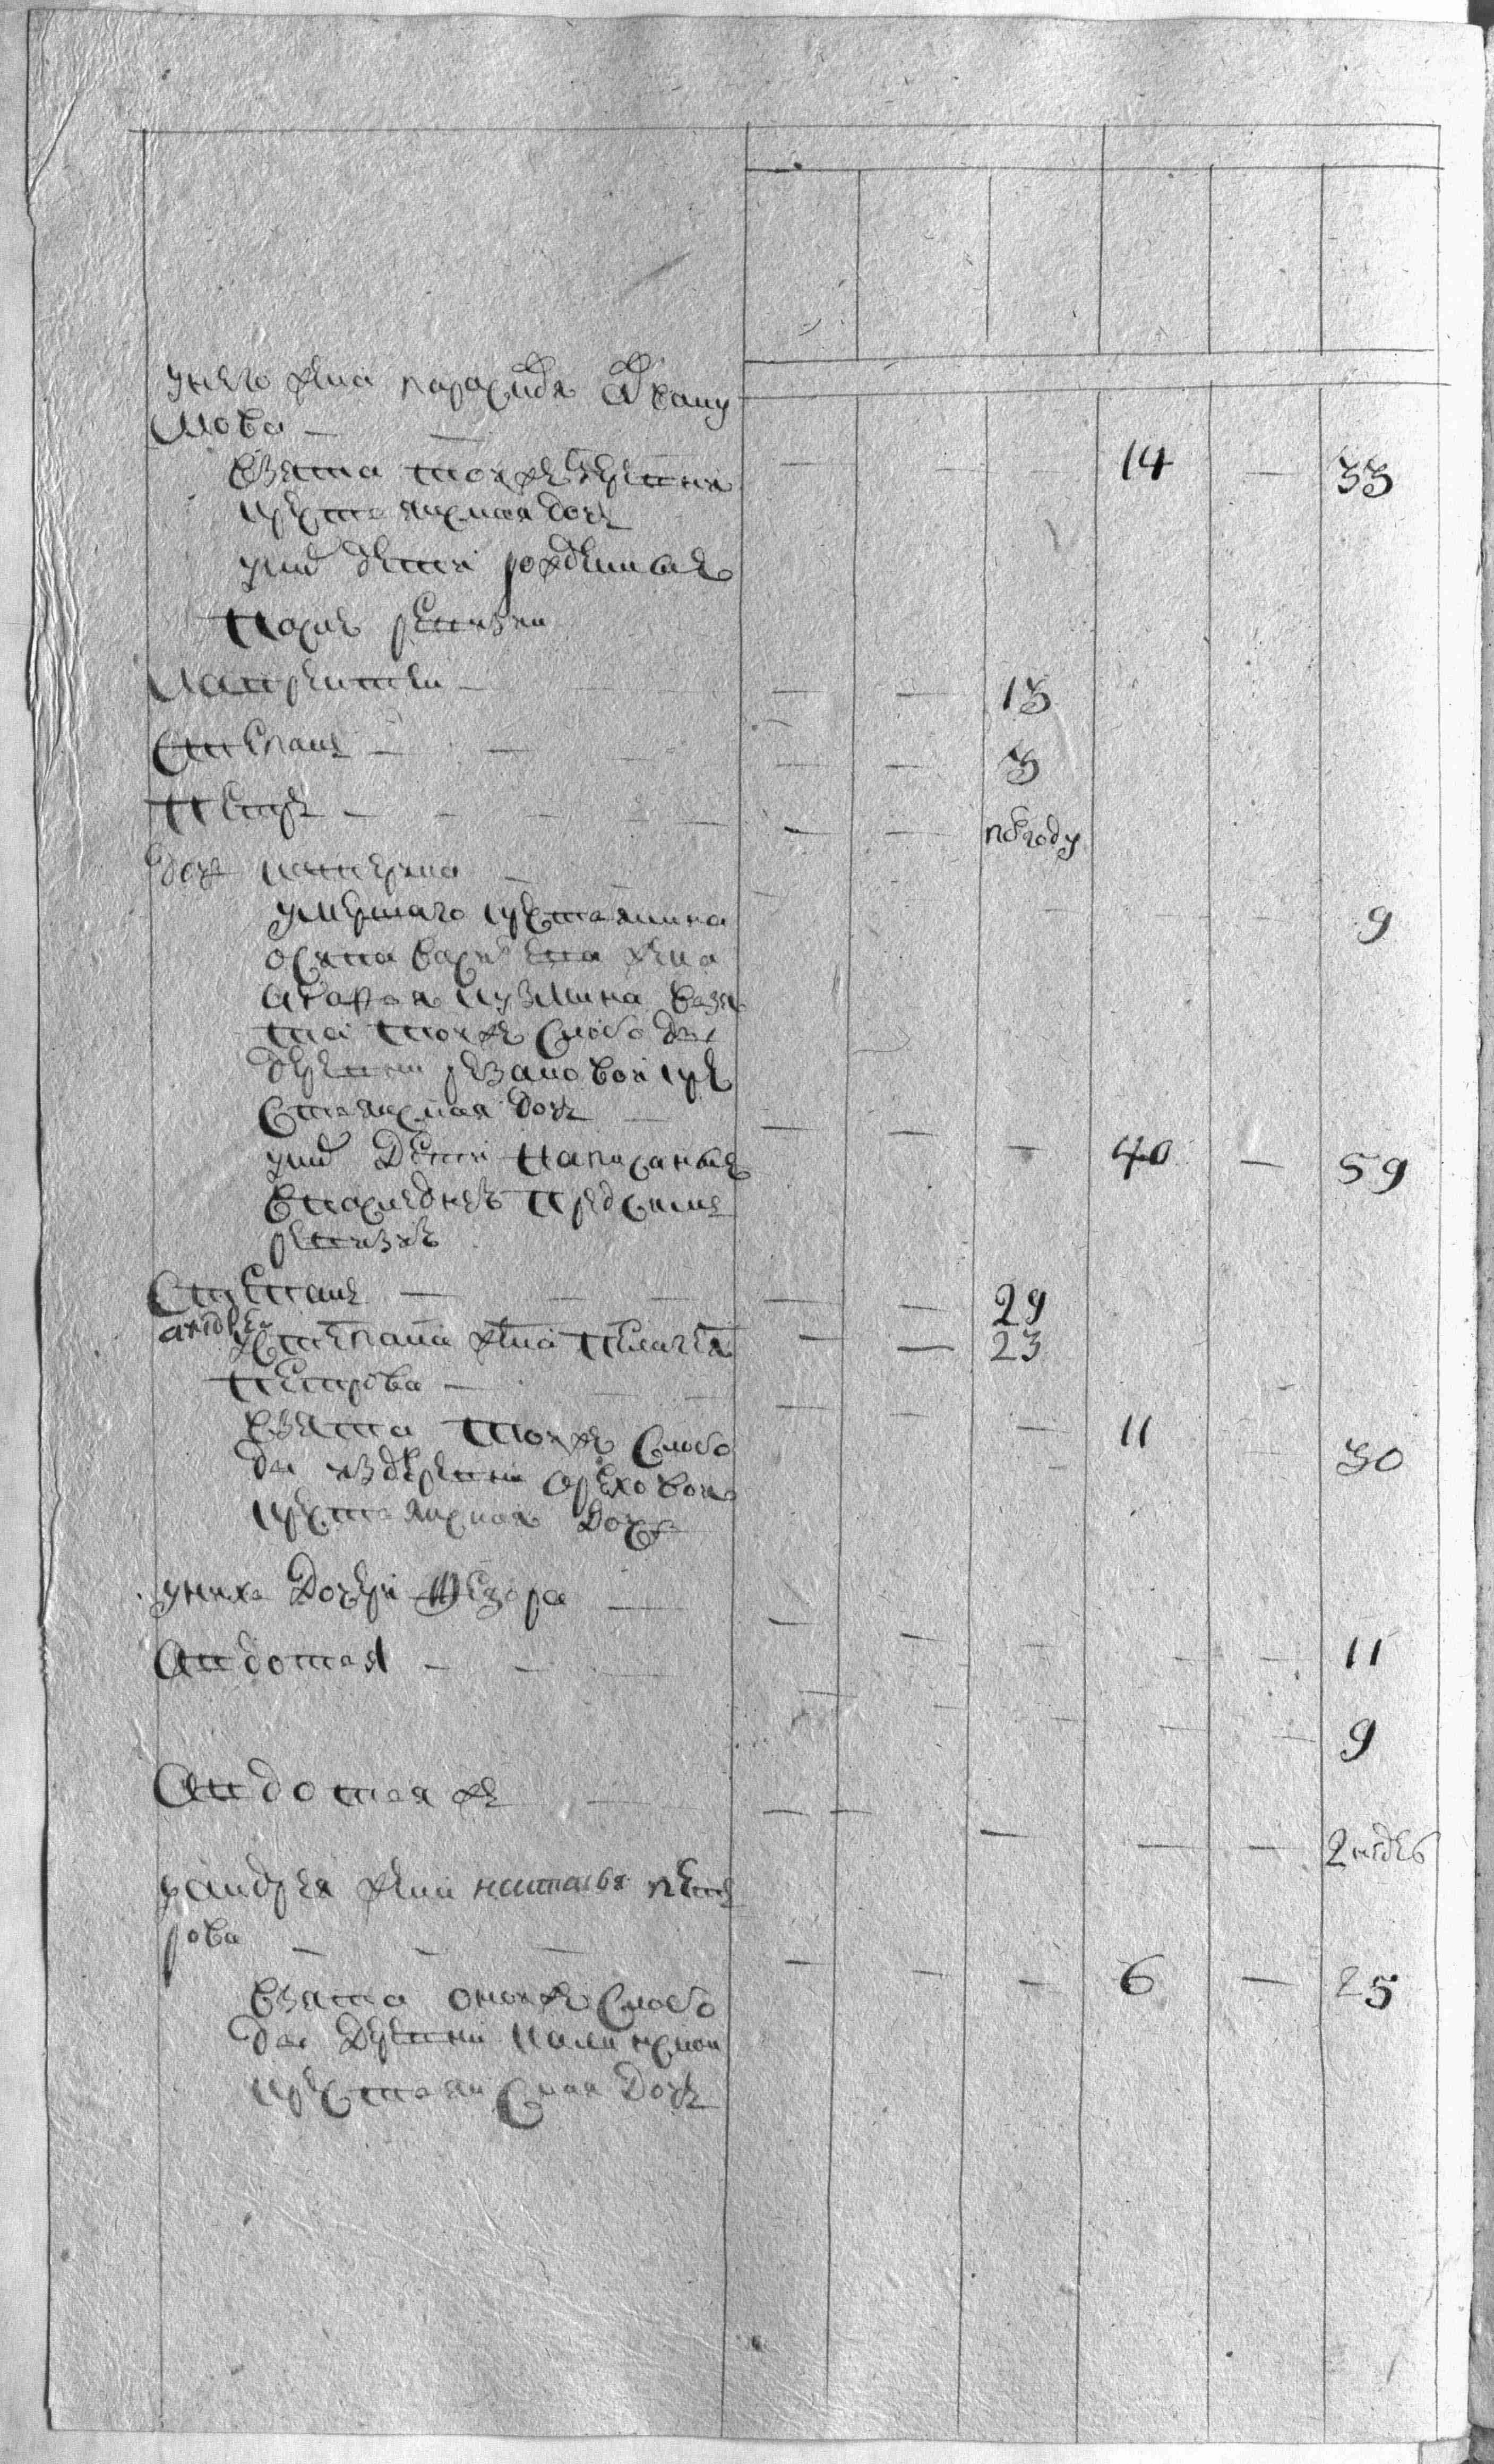 у него жена парасковья
мова
взята той же деревни 14 33
крестьянская дочь
у них дети рожденные
после ревизии
Лаврентей 13
Степанъ 3
Петръ полгоду
дочь катерина 9
умершаго крестьянина
осипа васильева жена
агафья кузмина взя
та той же слободы
деревни рязановой кре
стьянская дочь 40 59
у них дети написанные
в последней пред сим
ревизіи
Степанъ 29
андрей 23
у степана жена пелагея
петрова 11 30
взята той же слобо
ды из деревни ореховой
крестьянская дочь
у них дочери 11
Авдотья 9
Авдотья же 2 недел
у андрея жена наталья пет
рова 6 25
взята оной же слобо
ды деревни
крестьянская дочь